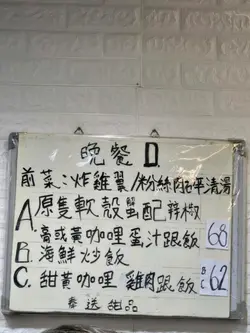 晚餐 D.
前菜：炸雞翼/粉絲肉碎清湯
A. 原隻軟殼蟹配辣椒
膏或黃咖哩蛋汁跟飯 68
B. 海鮮炒飯
C. 甜黃咖哩雞肉跟飯 B C 62
泰送甜品